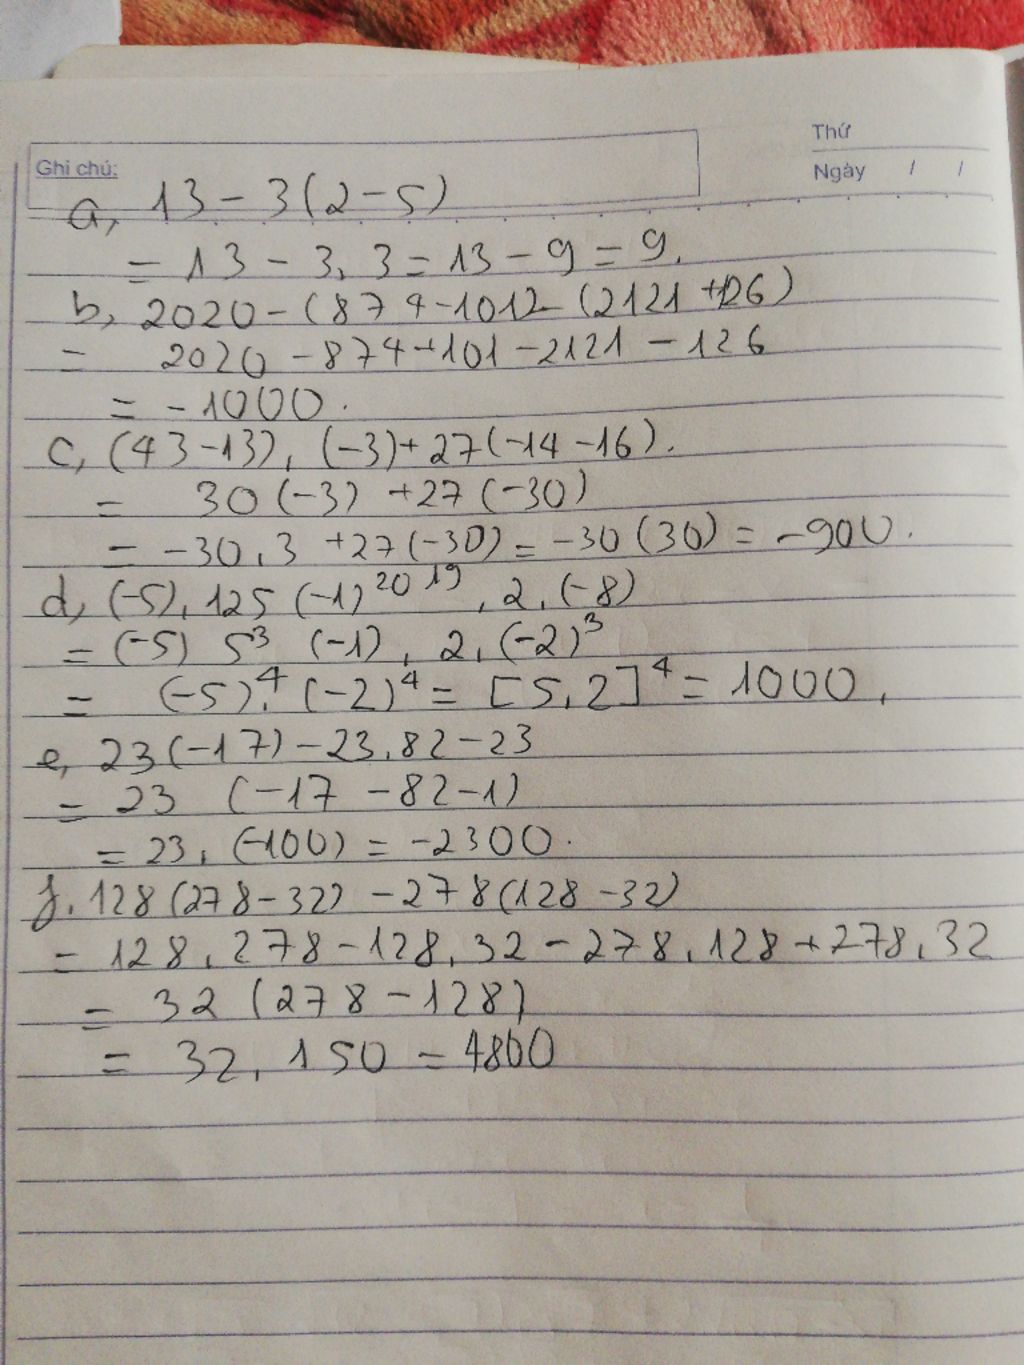 Thứ
Ghi chú:
Ngày / /
a, 13 - 3(2-5)
= 13 - 3. 3 = 13 - 9 = 9.
b, 2020 - (874 - 1012 - (2121 + 126)
= 2020 - 874 + 101 - 2121 - 126
= -1000.
c, (43 - 13). (-3) + 27(-14 - 16).
= 30(-3) + 27(-30)
= -30.3 + 27(-30) = -30(30) = -900.
d, (-5). 125 (-1)²⁰¹⁹. 2. (-8)
= (-5) 5³ (-1). 2. (-2)³
= (-5)⁴. (-2)⁴ = [5.2]⁴ = 1000.
e, 23(-17) - 23.82 - 23
= 23 (-17 - 82 - 1)
= 23. (-100) = -2300.
f. 128(278 - 32) - 278(128 - 32)
= 128. 278 - 128. 32 - 278. 128 + 278. 32
= 32 (278 - 128)
= 32. 150 = 4800